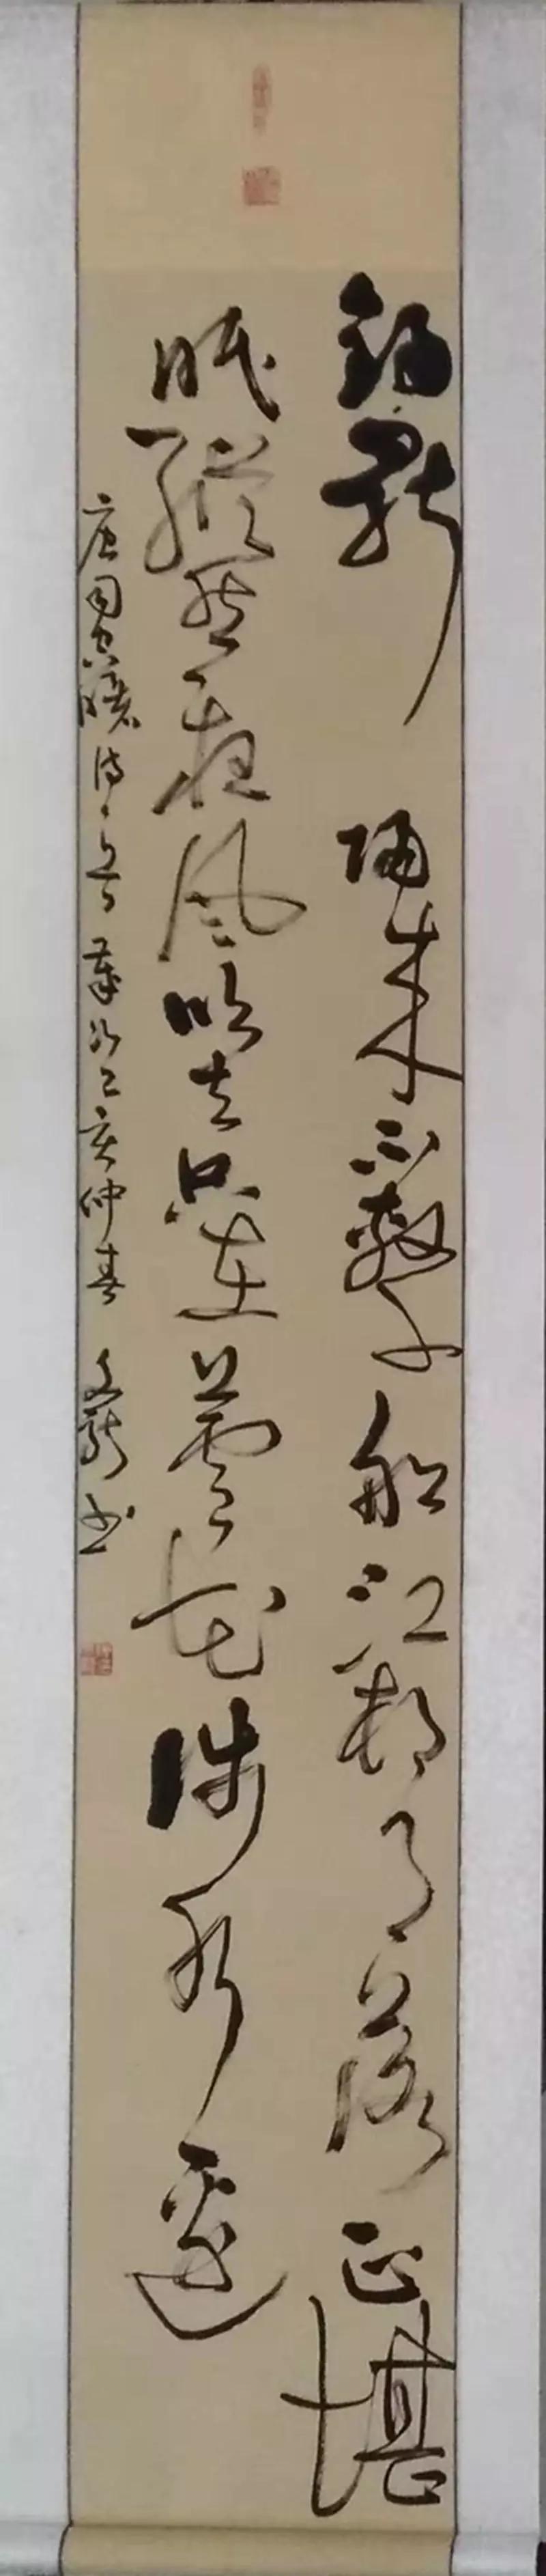 钓罢归来不系船江村月落正堪
眠纵然一夜风吹去只在芦花浅水边
唐司空曙诗文 岁次己亥仲春 书